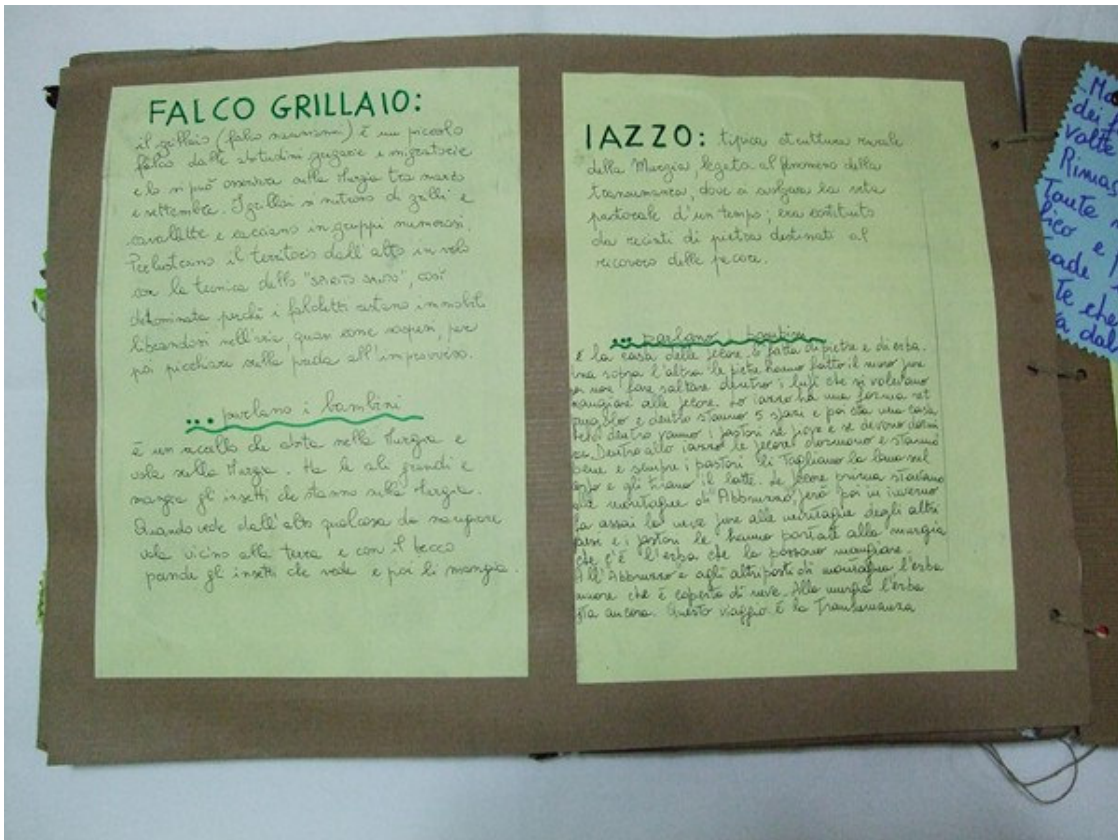 FALCO GRILLAIO:
il grillaio (falco naumanni) è un piccolo
falco dalle abitudini gregarie e migratorie
e lo si può osservare sulla Murgia tra marzo
e settembre. I grillai si nutrono di grilli e
cavallette e cacciano in gruppi numerosi.
Perlustrano il territorio dall'alto in volo
con la tecnica dello "spirito santo", così
denominata perché i falchetti restano immobili
librandosi nell'aria, quasi come sospesi, per
poi picchiare sulla preda all'improvviso.
... parlano i bambini
è un uccello che abita nella Murgia e
vola sulla Murgia. Ha le ali grandi e
mangia gli insetti che stanno sulla Murgia.
Quando vede dall'alto qualcosa da mangiare
vola vicino alla terra e con il becco
prende gli insetti che vede e poi li mangia.
IAZZO: tipica struttura rurale
della Murgia, legata al fenomeno della
transumanza, dove si svolgeva la vita
pastorale d'un tempo; era costituito
da recinti di pietra destinati al
ricovero delle pecore.
... parlano i bambini
È la casa delle pecore. È fatta di pietre e di erba.
una sopra l'altra le pietre hanno fatto il muro pure
per non fare saltare dentro i lupi che si volevano
mangiare alle pecore. Lo iazzo ha una forma ret
tangolo e dentro stanno 5 spazi e poi sta una casa
dentro vanno i pastori se piove e se devono dormi
re. Dentro allo iazzo le pecore dormivano e stanno
bene e sempre i pastori li tagliano la lana sul
corpo e gli tirano il latte. Le pecore prima stavano
alle montagne di Abbruzzo, però poi in inverno
fa assai la neve pure alle montagne degli altri
paesi e i pastori le hanno portate alla murgia
che c'è l'erba che la possono mangiare.
All'Abbruzzo e agli altri posti di montagna l'erba
muore che è coperta di neve. Alla murgia l'erba
sta ancora. Questo viaggio è la Transumanza
dei
volte
Tante
e